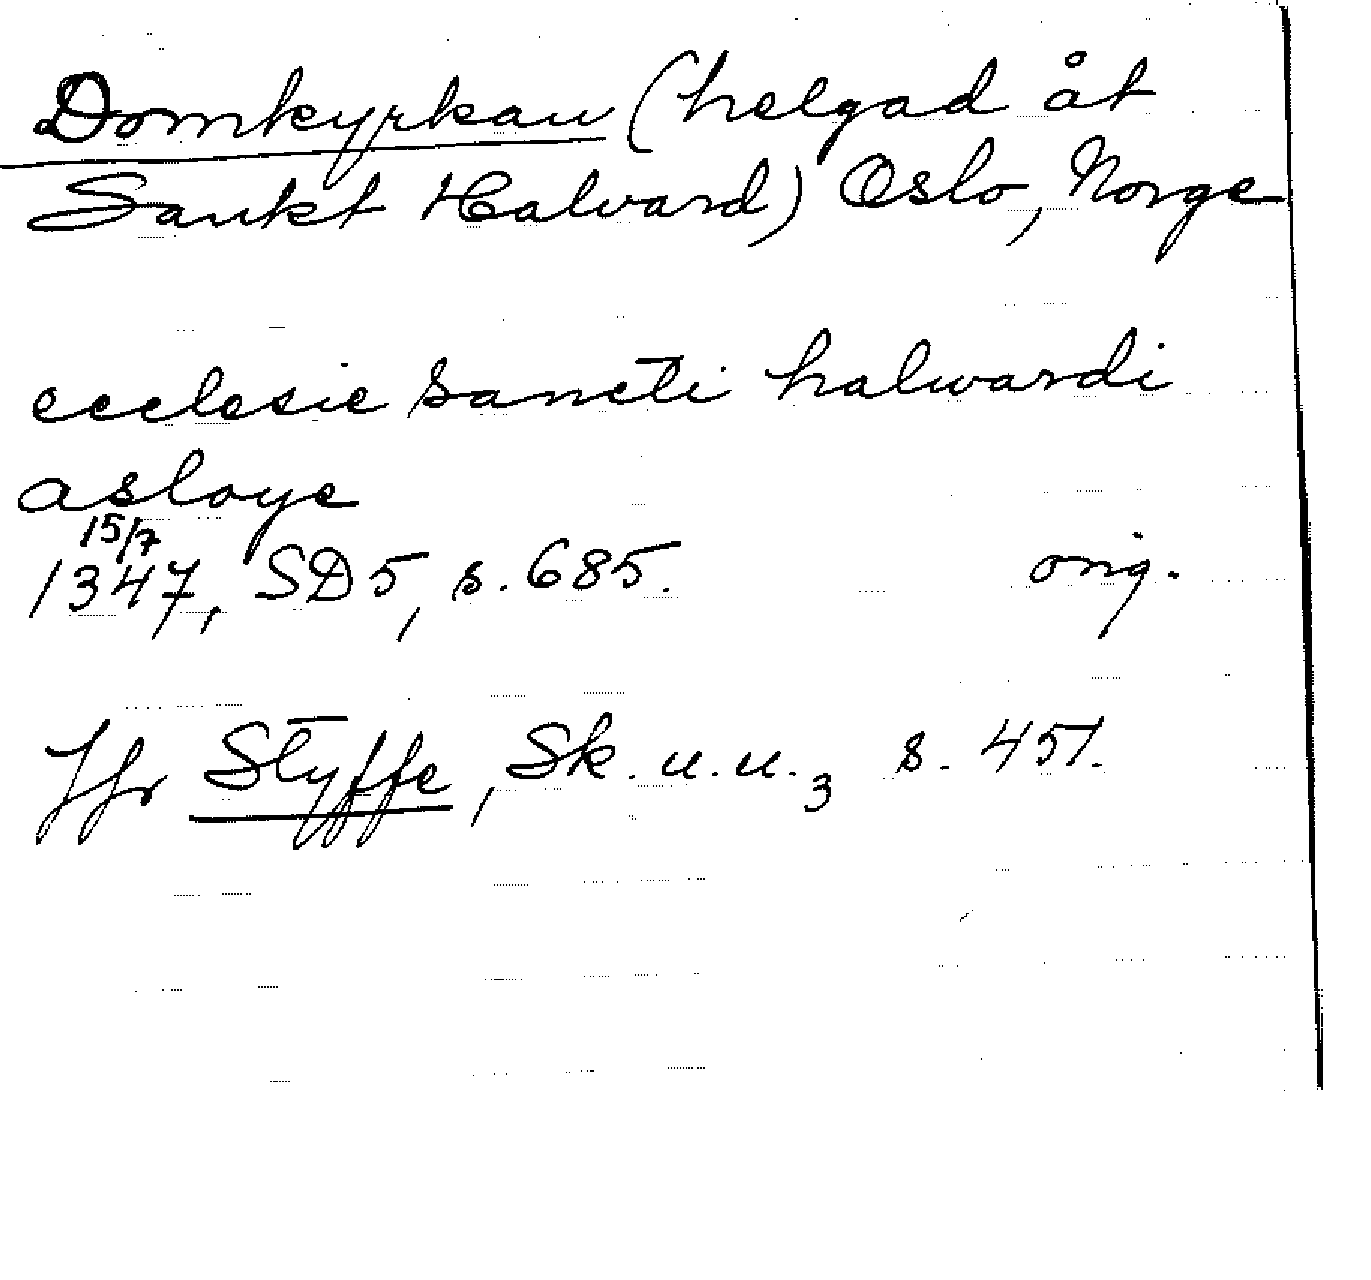 Domkyrkan (helgad åt
Sankt Halvard) Oslo, Norge
ecclesie sancti halwardi
asloye
15/7
1347, SD5, s. 685. orig.
Jfr Styffe, Sk. u. u.3 s. 451.